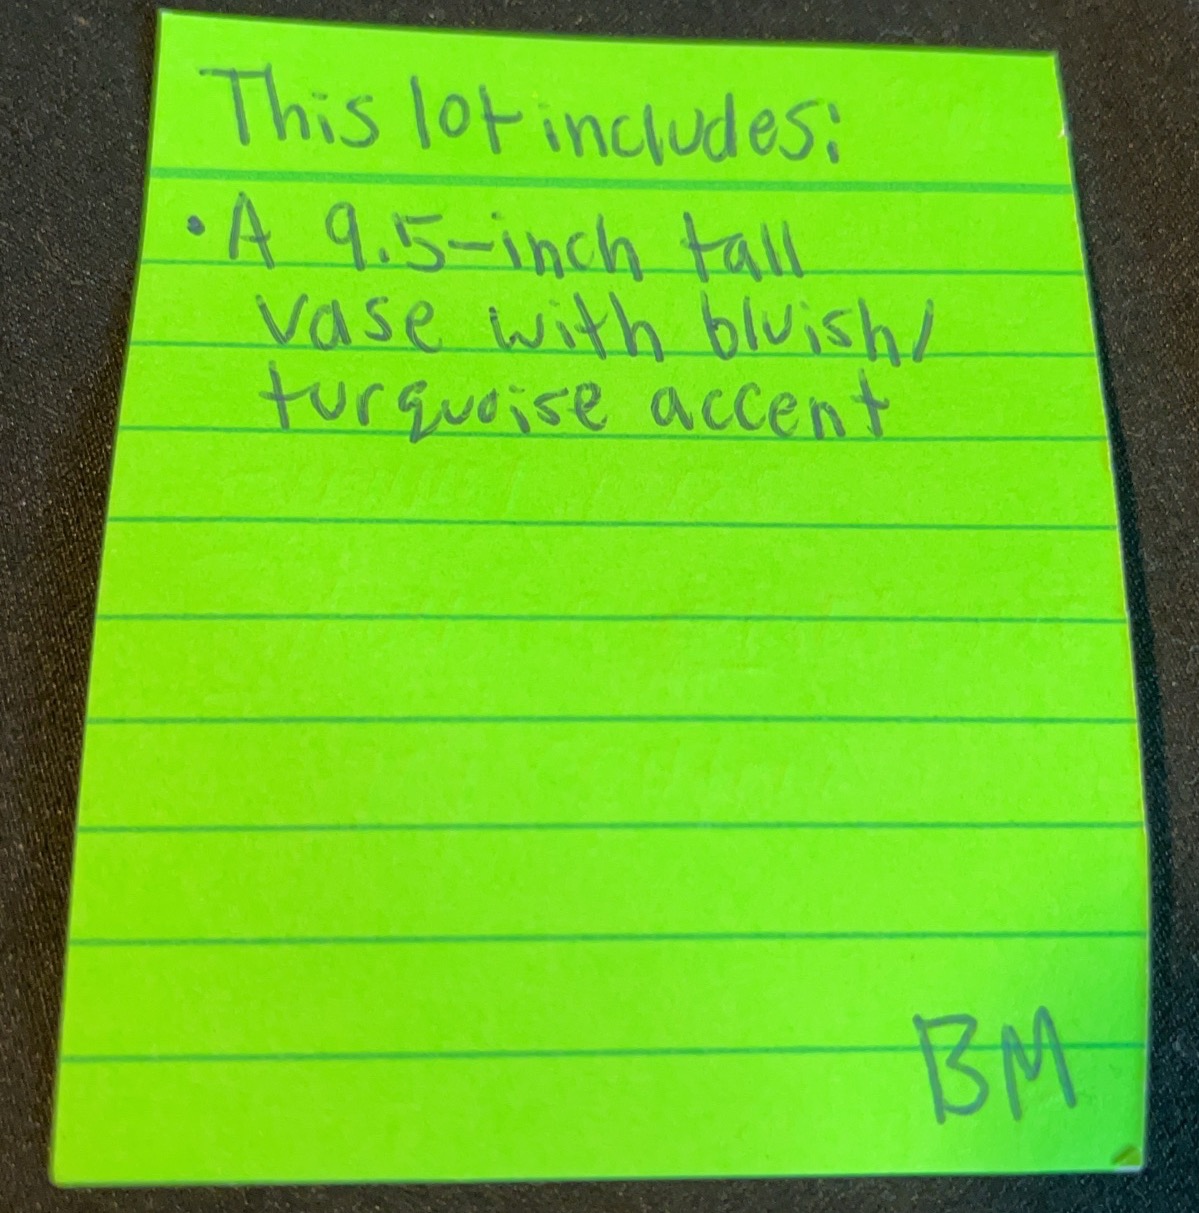 This lot includes:
• A 9.5-inch tall
vase with bluish/
turquoise accent
BM